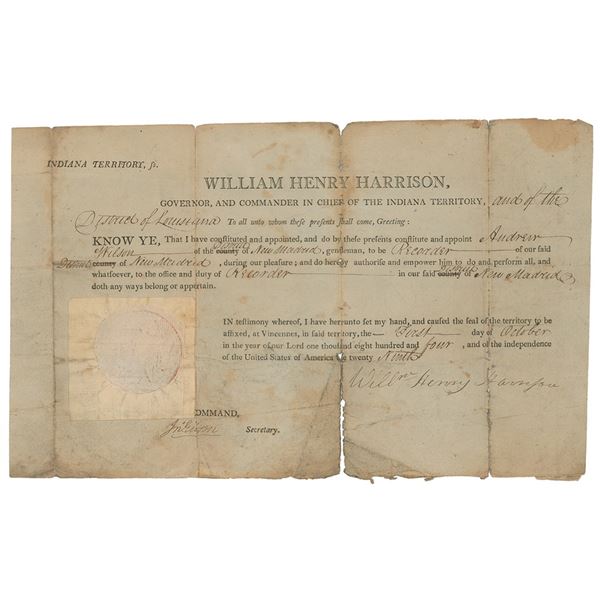 INDIANA TERRITORY, ſs.
WILLIAM HENRY HARRISON,
GOVERNOR, AND COMMANDER IN CHIEF OF THE INDIANA TERRITORY, and of the
District of Louisiana To all unto whom these presents ſhall come, Greeting:
KNOW YE, That I have conſtituted and appointed, and do by theſe preſents conſtitute and appoint Andrew
Wilson of the county District of New Madrid, gentleman, to be Recorder of our ſaid
county District of New Madrid, during our pleaſure; and do hereby authoriſe and empower him to do and perform all, and
whatſoever, to the office and duty of Recorder in our ſaid county District of New Madrid
doth any ways belong or appertain.
IN teſtimony whereof, I have hereunto ſet my hand, and cauſed the ſeal of the territory to be
affixed, at Vincennes, in ſaid territory, the First day of October
in the year of our Lord one thouſand eight hundred and four, and of the independence
of the United States of America twenty Ninth
Willm Henry Harrison
COMMAND,
Jno Gibson Secretary.